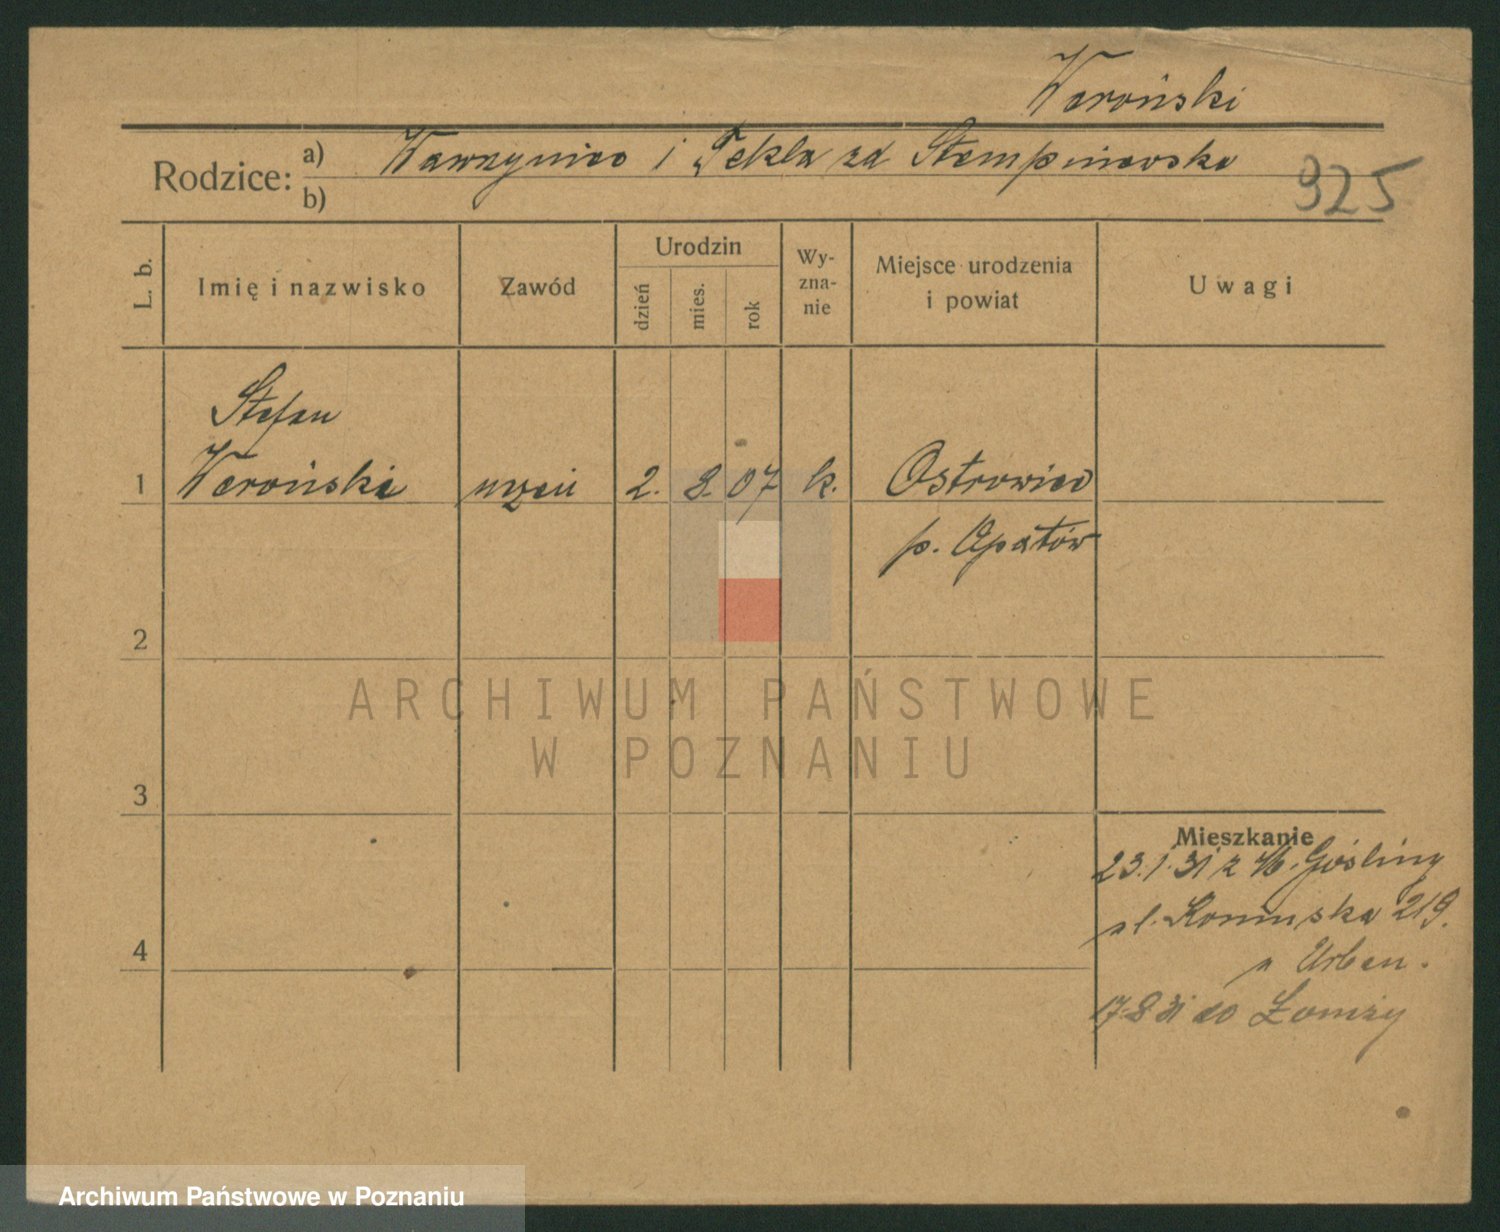 Weroński
Rodzice: a) Wawrzyniec i Tekla zd Stempniewska
b)
325
L. b.
Imię i nazwisko
Zawód
Urodzin
dzień
mies.
rok
Wy-
zna-
nie
Miejsce urodzenia
i powiat
Uwagi
Stefan
1 Weroński uczeń 2. 8. 07 k. Ostrowiec
p. Opatów
2
ARCHIWUM PAŃSTWOWE
W POZNANIU
3
Mieszkanie
23.1.31 z M. Gośliny
ul. 219.
u Urban.
4
17.8 31 do Łomży
Archiwum Państwowe w Poznaniu